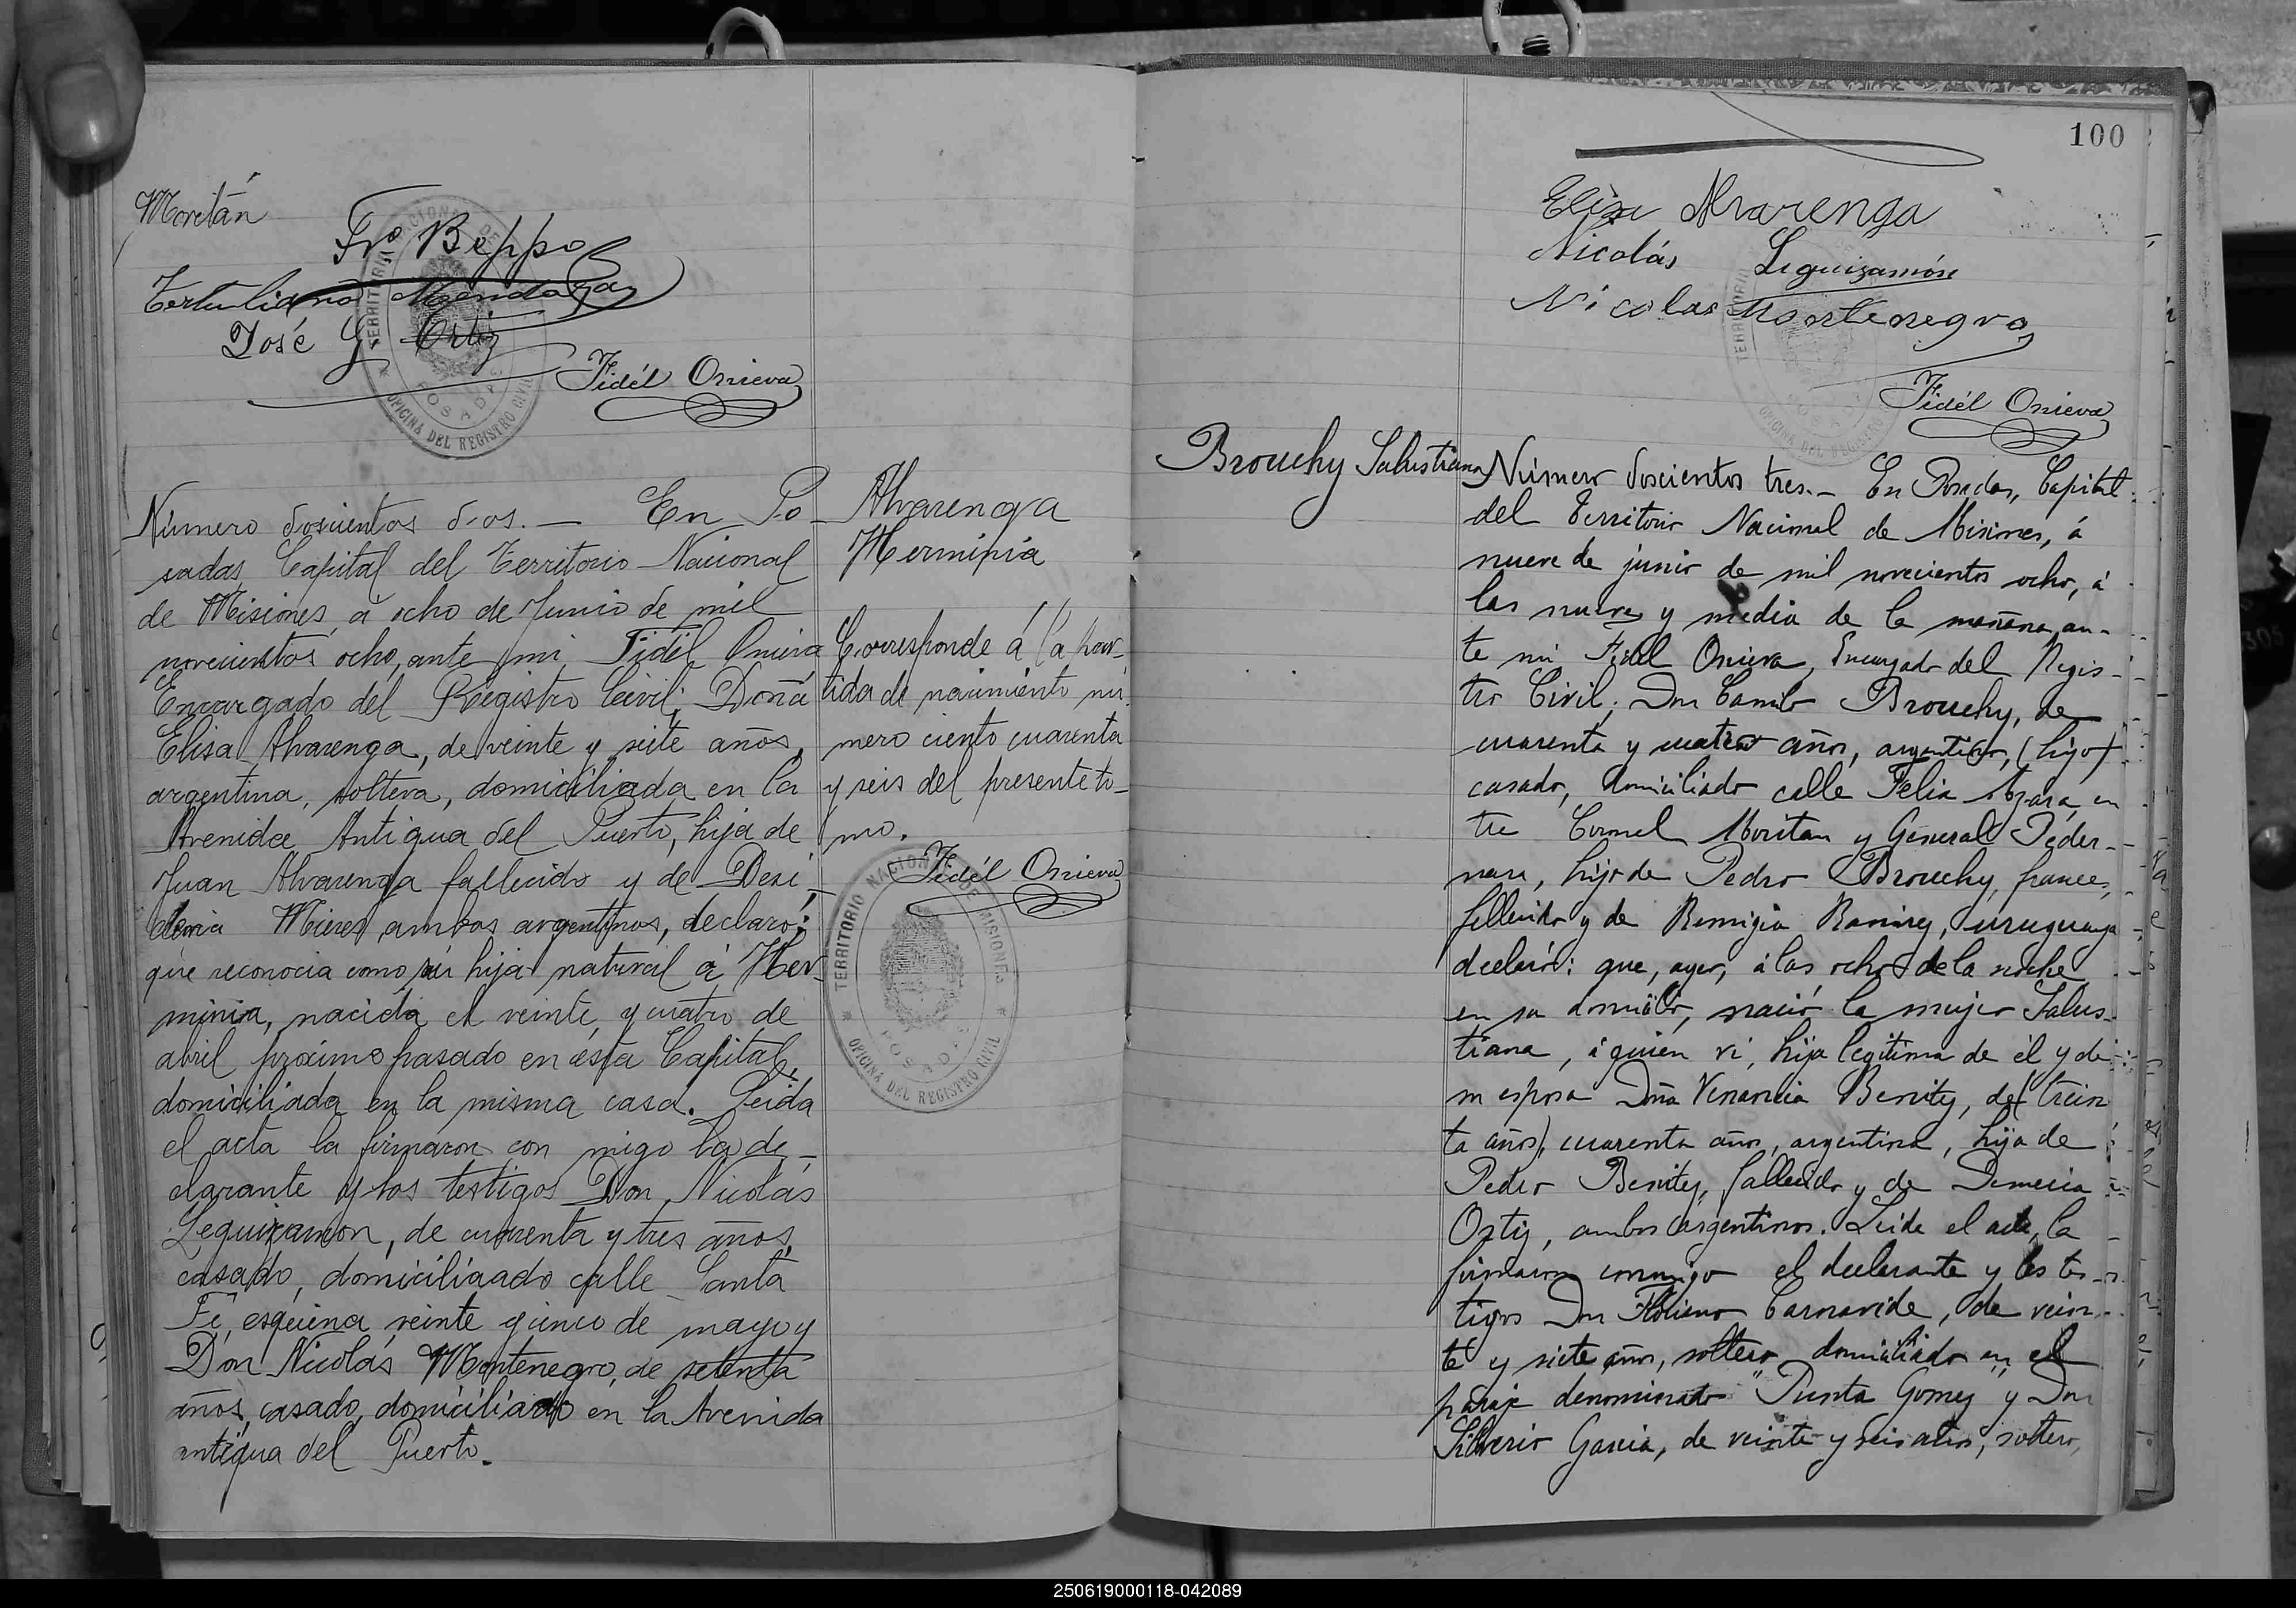 Moritán
Fco Beppo
Tertuliano Mendoza
José G. Ortiz
Fidél Onieva
TERRITORIO NACIONAL DE MISIONES
POSADAS
OFICINA DEL REGISTRO CIVIL
Número doscientos dos. — En Po-
sadas, Capital del Territorio Nacional
de Misiones, á ocho de Junio de mil
novecientos ocho, ante mi, Fidél Onieva
Encargado del Registro Civil; Doña
Elisa Alvarenga, de veinte y siete años,
argentina, soltera, domiciliada en la
Avenida Antigua del Puerto, hija de
Juan Alvarenga fallecido y de Desi-
deria Mieres, ambos argentinos, declaró:
que reconocia como su hija natural á Her-
minia, nacida el veinte y cuatro de
abril próximo pasado en ésta Capital,
domiciliada en la misma casa. Leida
el acta la firmaron con migo la de-
clarante y los testigos Don Nicolás
Leguizamón, de cuarenta y tres años,
casado, domiciliaado calle Santa
Fé, esquina veinte y cinco de mayo y
Don Nicolás Montenegro, de setenta
años, casado, domiciliado en la Avenida
antigua del Puerto.
Alvarenga
Herminia
Corresponde á la par-
tida de nacimiento nú-
mero ciento cuarenta
y seis del presente to-
mo.
Fidél Onieva
TERRITORIO NACIONAL DE MISIONES
POSADAS
OFICINA DEL REGISTRO CIVIL
100
Elisa Alvarenga
Nicolás Leguizamón
Nicolas Montenegro
Fidél Onieva
Brouchy Salustiana
Número doscientos tres.— En Posadas, Capital
del Territorio Nacional de Misiones, á
nueve de junio de mil novecientos ocho, á
las nueve y media de la mañana, an-
te mi Fidel Onieva, Encargado del Regis-
tro Civil; Don Camilo Brouchy, de
cuarenta y cuatro años, argentino, (hijo)
casado, domiciliado calle Felix Azara, en
tre Coronel Moritan y General Peder-
nera, hijo de Pedro Brouchy, frances,
fallecido y de Remigia Ramirez, uruguaya
declaró: que, ayer, á las ocho de la noche
en su domicilio, nació la mujer Salus-
tiana, á quien vi, hija legitima de él y de
su esposa Doña Venancia Benitez, de (trein
ta años), cuarenta años, argentina, hija de
Pedro Benitez, fallecido y de
Ortiz, ambos argentinos. Leida el acta, la
firmaron conmigo el declarante y los tes-
tigos Don Carnavide, de vein-
te y siete años, soltero, domiciliado en el
paraje denominado "Punta Gomez" y Don
Silverio Garcia, de veinte y seis años, soltero,
250619000118-042089